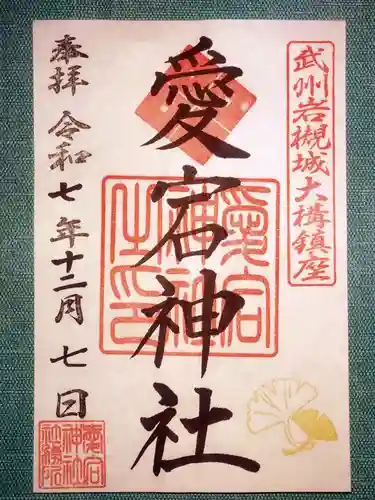 武州岩槻城大構鎮座
愛宕神社
愛宕神社之印
奉拝 令和七年十二月七日
愛宕神社